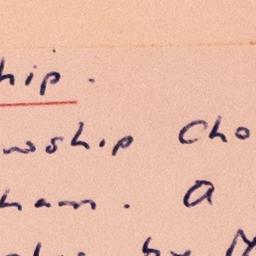 hip.
wship Cho
ham. A
by M